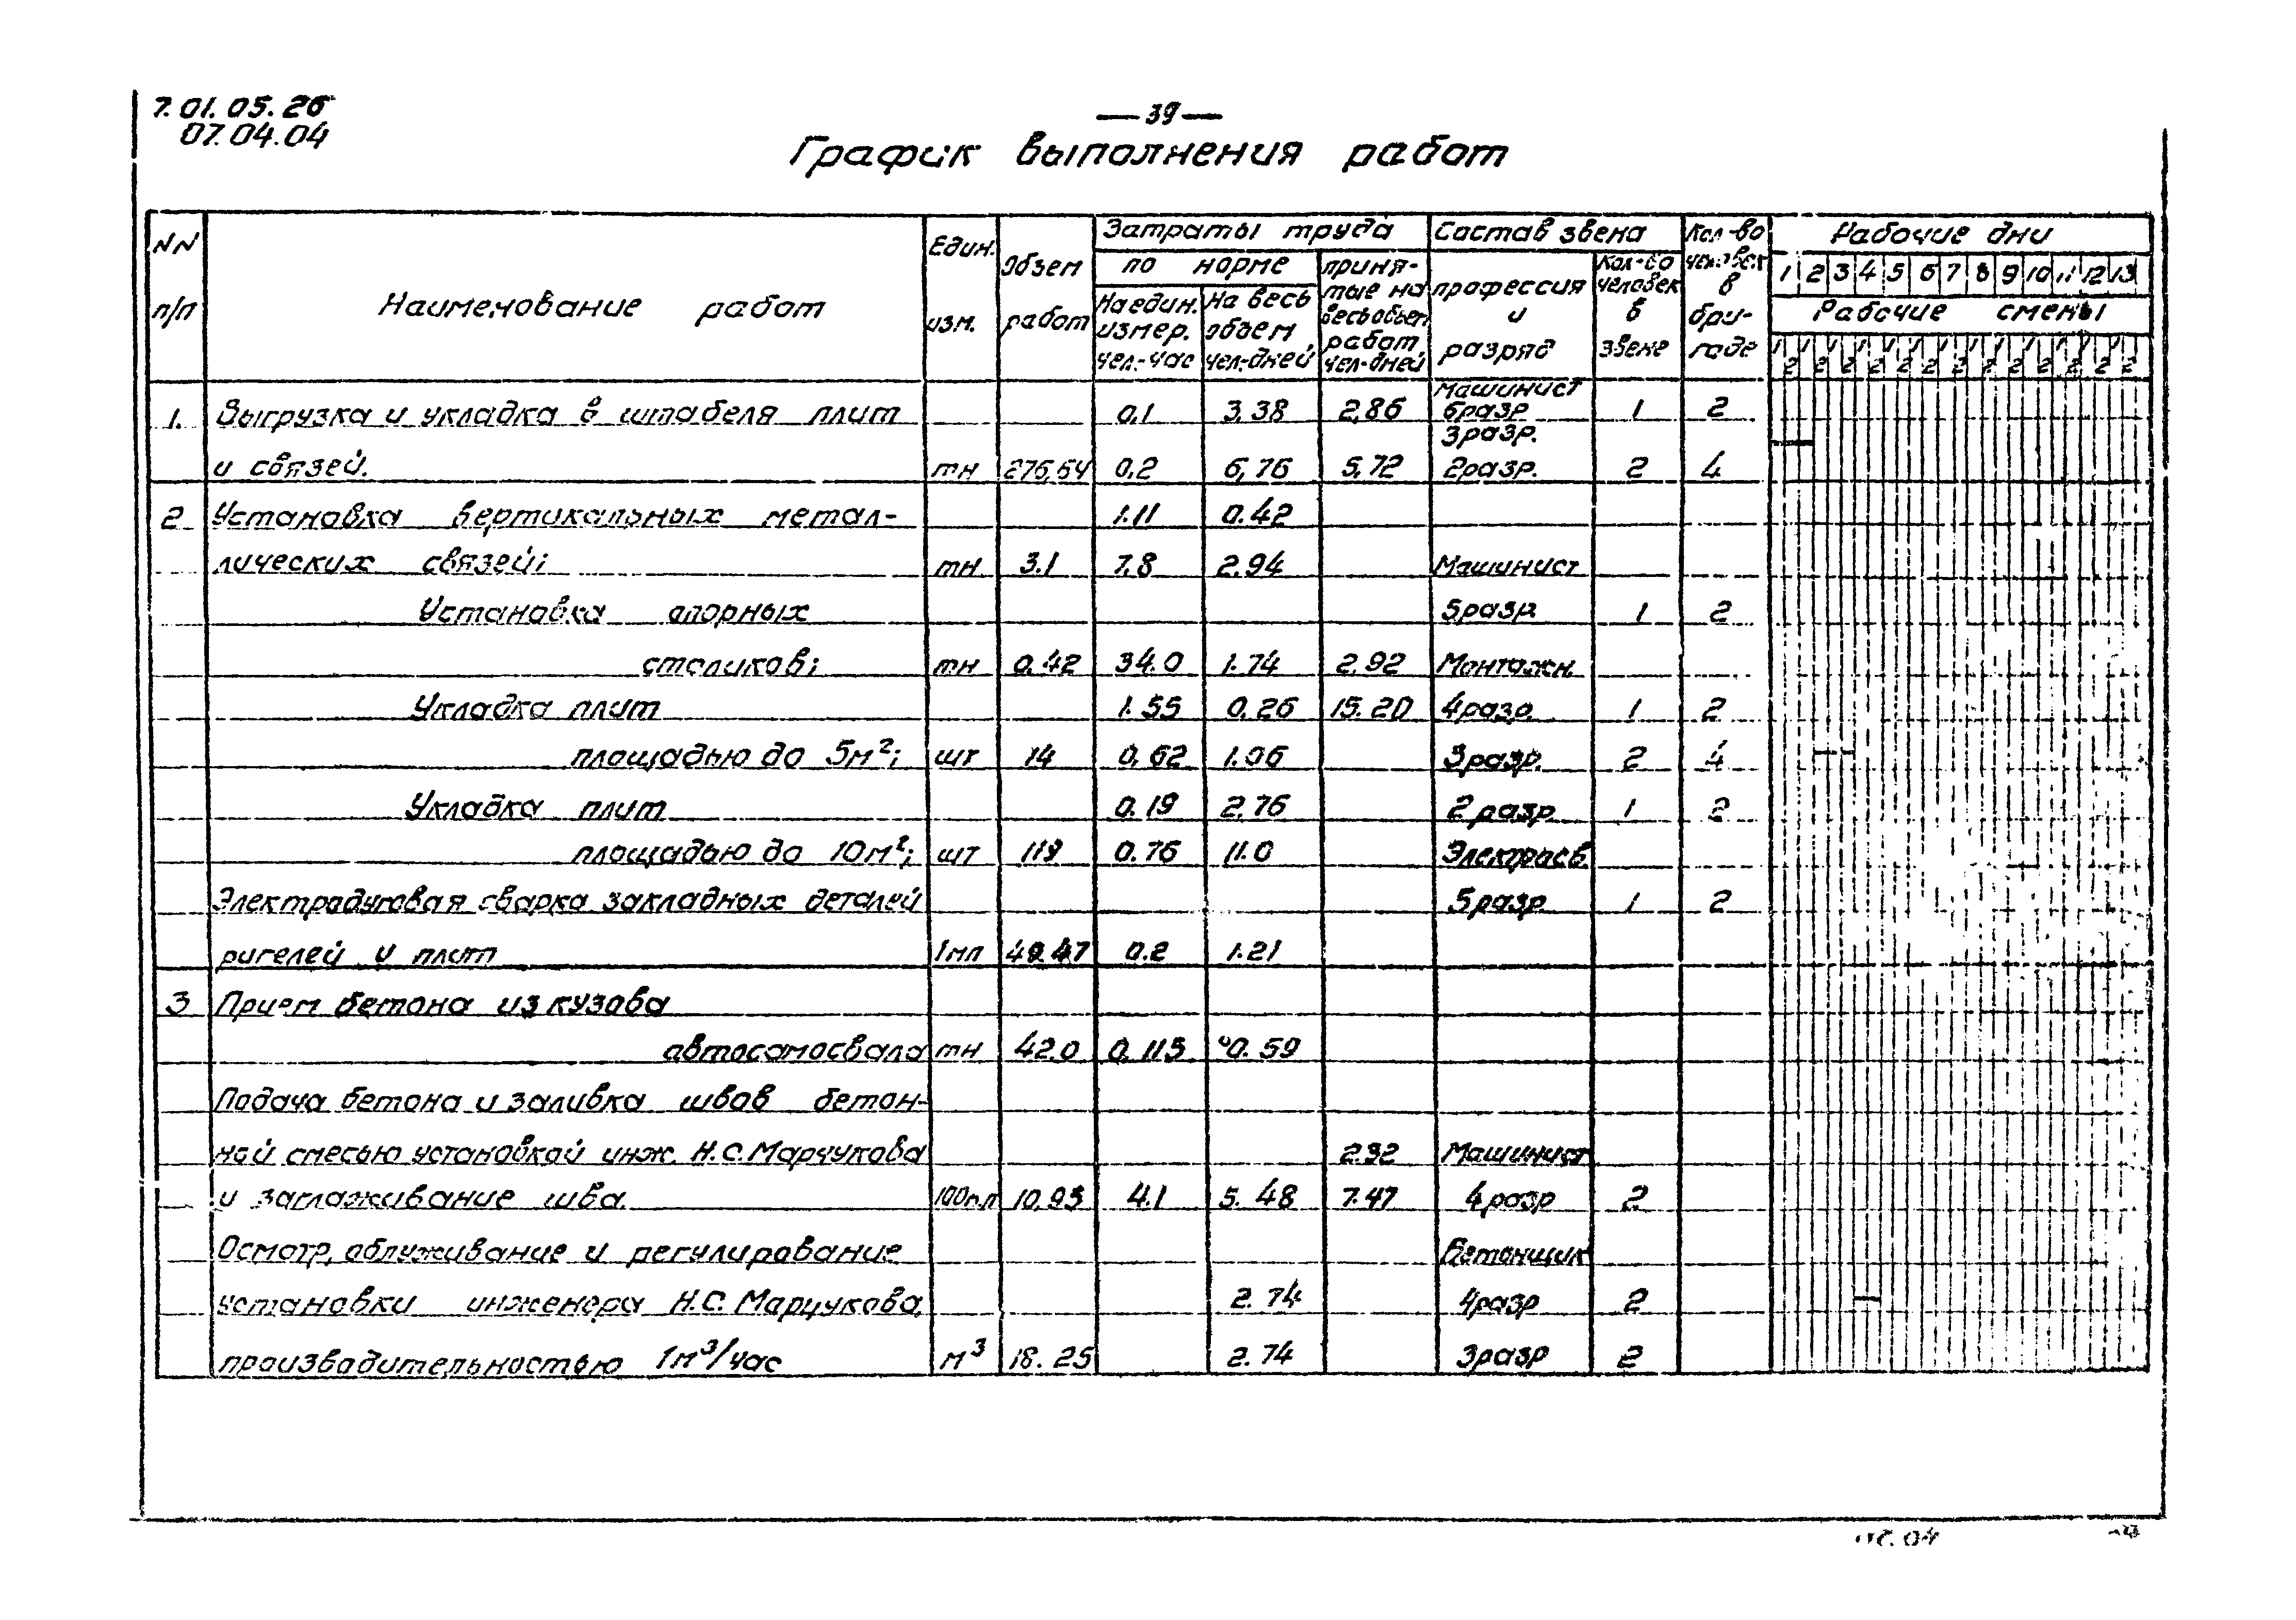 7.01.05.26
07.04.04
— 39 —
График выполнения работ
NN п/п
Наименование работ
Един. изм.
Объем работ
Затраты труда
по норме
На един. измер. чел.-час
На весь объем чел-дней
принятые на весь объем работ чел-дней
Состав звена
профессия и разряд
Кол-во человек в звене
Кол-во человек в бригаде
Рабочие дни
1 2 3 4 5 6 7 8 9 10 11 12 13
Рабочие смены
1 2 1 2 1 2 1 2 1 2 1 2 1 2 1 2 1 2 1 2 1 2 1 2 1 2
Машинист
1. Выгрузка и укладка в штабеля плит 0,1 3.38 2,86 6разр 1 2
3разр.
и связей. тн 276,64 0,2 6,76 5,72 2разр. 2 4
2 Установка вертикальных метал- 1.11 0.42
лических связей; тн 3.1 7.8 2.94 Машинист
Установка опорных 5разр 1 2
столиков; тн 0.42 34.0 1.74 2.92 Монтажн.
Укладка плит 1.55 0.26 15.20 4разр. 1 2
площадью до 5м²; шт 14 0,62 1.06 3разр. 2 4
Укладка плит 0.19 2.76 2разр. 1 2
площадью до 10м²; шт 119 0.76 11.0 Электросв.
Электродуговая сварка закладных деталей 5разр. 1 2
ригелей и плит 1мп 49.47 0.2 1.21
3 Прием бетона из кузова
автосамосвала тн 42.0 0.113 0.59
Подача бетона и заливка швов бетон-
ной смесью установкой инж. Н.С. Марчукова 2.32 Машинист
и заглаживание шва. 100п.п 10.93 4.1 5.48 7.47 4разр 2
Осмотр, облуживание и регулирование Бетонщик
установки инженера Н.С. Марцукова, 2.74 4разр 2
производительностью 1м³/час м³ 18.25 2.74 3разр 2